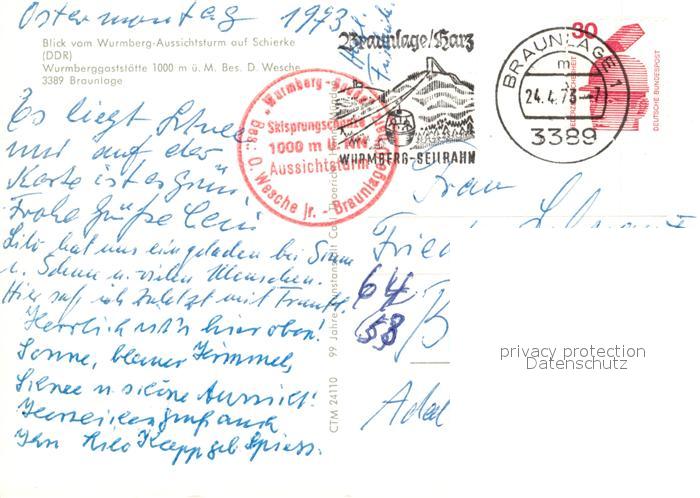 Ostermontag 1973
Blick vom Wurmberg-Aussichtsturm auf Schierke
(DDR)
Wurmberggaststätte 1000 m ü. M. Bes. D. Wesche
3389 Braunlage
Es liegt Schnee
und auf der
Karte ist es grün
Frohe Grüße
Lilo hat uns eingeladen bei Sonne
u. Schnee u. vielen Menschen.
Hier saß ich zuletzt mit
Herrlich ist's hier oben!
Sonne, blauer Himmel,
Schnee u. schöne Aussicht!
Herzlichen Gruß auch
Lilo Kapp geb.
Wurmberg
Skisprungschanze
1000 m ü. M.
Aussichtsturm
Bes. D. Wesche jr. - Braunlage
Braunlage/Harz
WURMBERG-SEILBAHN
BRAUNLAGE 1
m
24.4.73-7
3389
30
DEUTSCHE BUNDESPOST
99 Jahre Kunstanstalt
CTM 24110
Frau
64
58
B
privacy protection
Datenschutz